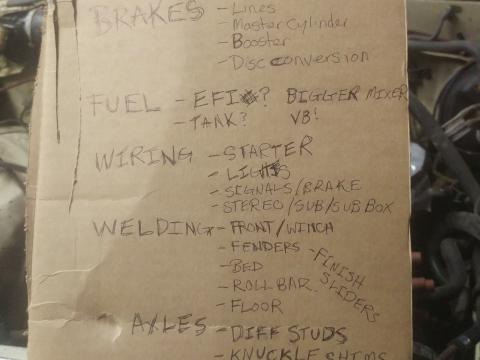 BRAKES - Lines
- Master Cylinder
- Booster
- Disc conversion
FUEL - EFI? BIGGER MIXER
- TANK? V8!
WIRING - STARTER
- LIGHTS
- SIGNALS/BRAKE
- STEREO/SUB/SUB BOX
WELDING - FRONT/WINCH
- FENDERS - FINISH SLIDERS
- BED
- ROLL BAR
- FLOOR
AXLES - DIFF STUDS
- KNUCKLE SHIMS